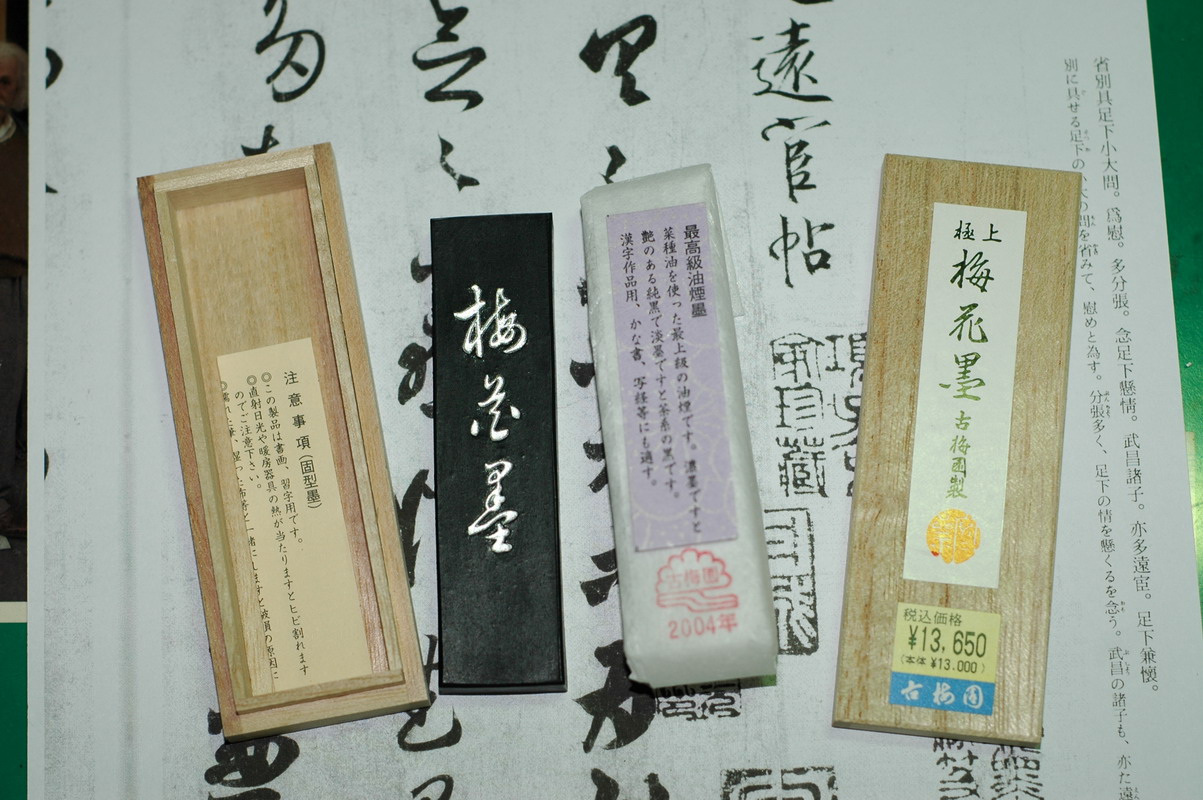 遠宦帖
省別具足下小大問。爲慰。多分張。念足下懸情。武昌諸子。亦多遠宦。足下兼懷。
別に具せる足下の小大の問を省みて、慰めと為す。分張多く、足下の情を懸くるを念う。武昌の諸子も、亦た遠
極上
梅花墨
古梅園製
税込価格
¥13,650
(本体 ¥13,000)
古梅園
最高級油煙墨
菜種油を使った最上級の油煙です。濃墨ですと
艶のある純黒で淡墨ですと茶系の黒です。
漢字作品用、かな書、写経等にも適す。
古梅園
2004年
梅花墨
注意事項(固型墨)
◎この製品は書画、習字用です。
◎直射日光や暖房器具の熱が当たりますとヒビ割れます
のでご注意下さい。
◎濡れた筆、湿った布等と一緒にしますと破損の原因に